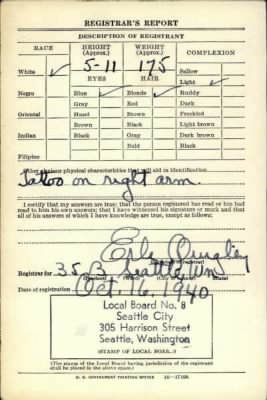 REGISTRAR'S REPORT
DESCRIPTION OF REGISTRANT
RACE HEIGHT (Approx.) WEIGHT (Approx.) COMPLEXION
5-11 175 Sallow
White ✓ EYES HAIR Light ✓
Negro Blue ✓ Blonde ✓ Ruddy
Gray Red Dark
Oriental Hazel Brown Freckled
Brown Black Light brown
Indian Black Gray Dark brown
Bald Black
Filipino
Other obvious physical characteristics that will aid in identification
Tattoo on right arm.
I certify that my answers are true; that the person registered has read or has had
read to him his own answers; that I have witnessed his signature or mark and that
all of his answers of which I have knowledge are true, except as follows:
Registrar for 35 B Seattle Wn
Date of registration Oct 16, 1940
Local Board No. 8
Seattle City
305 Harrison Street
Seattle, Washington
(STAMP OF LOCAL BOARD)
(The stamp of the Local Board having jurisdiction of the registrant
shall be placed in the above space.)
U. S. GOVERNMENT PRINTING OFFICE